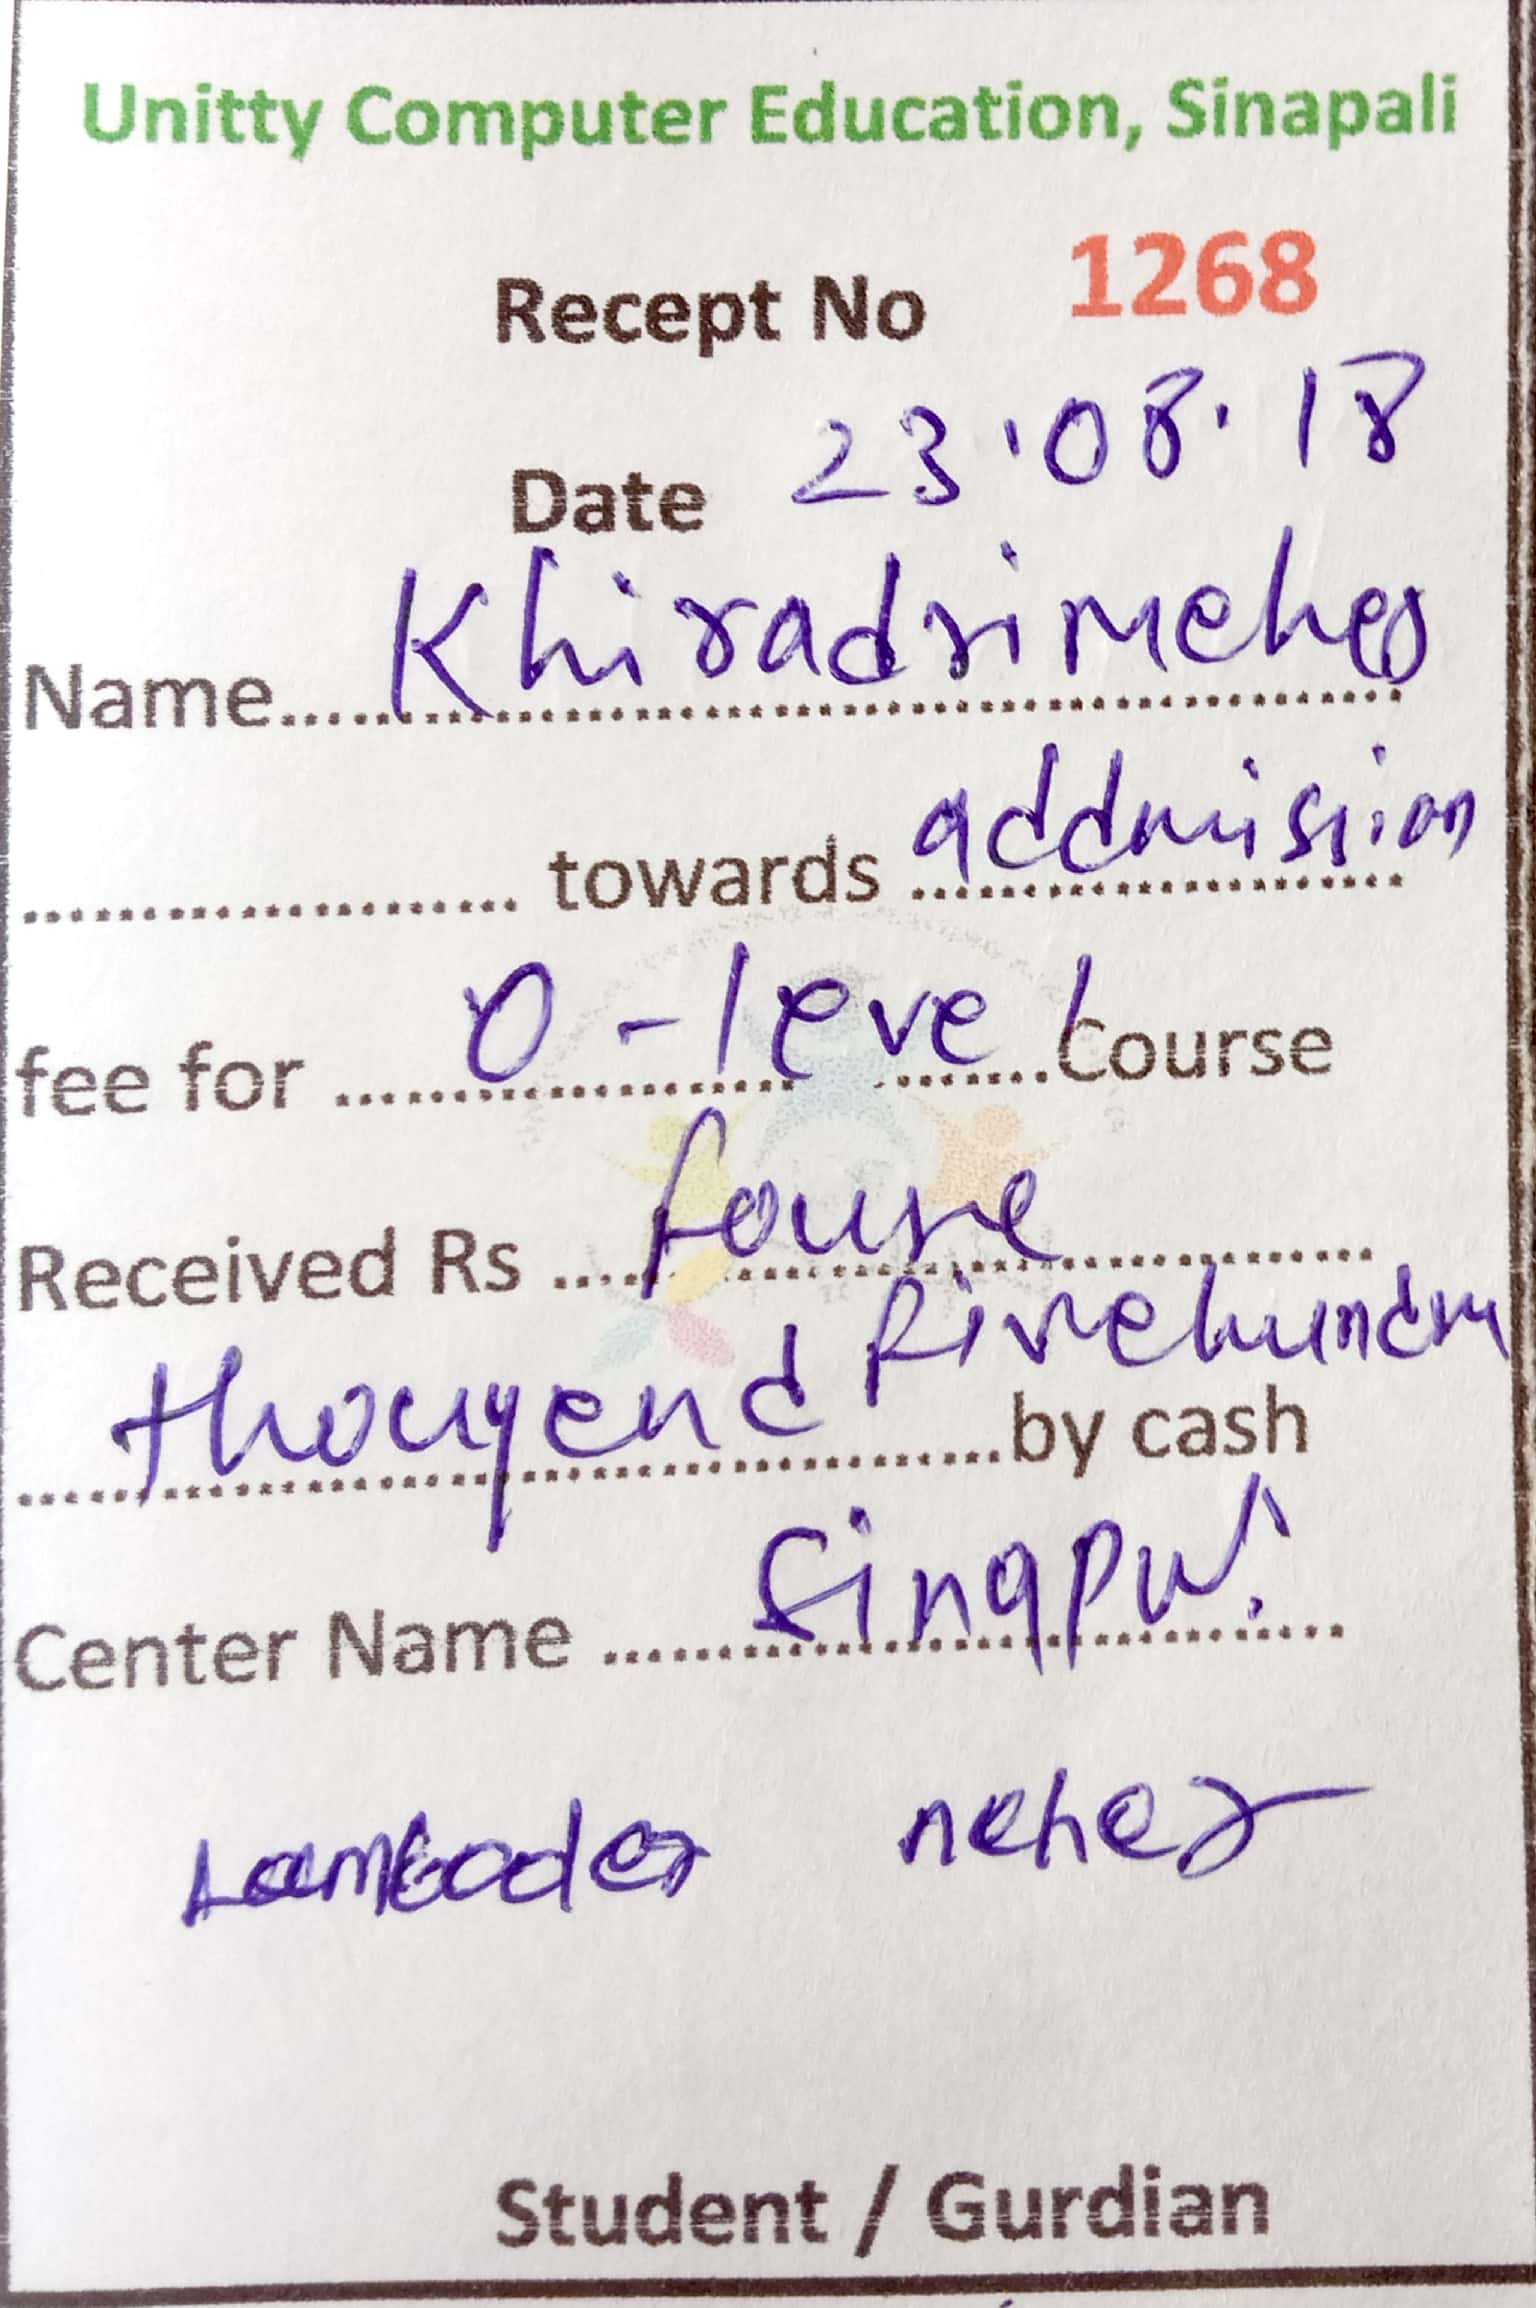 Unitty Computer Education, Sinapali
Recept No 1268
Date 23.08.18
Name..... Khiradri meher
.................... towards addmission
fee for .......... O-level Course
Received Rs .... foure
thousend five hundra by cash
Center Name .......... Sinapali
Lambader meher
Student / Gurdian